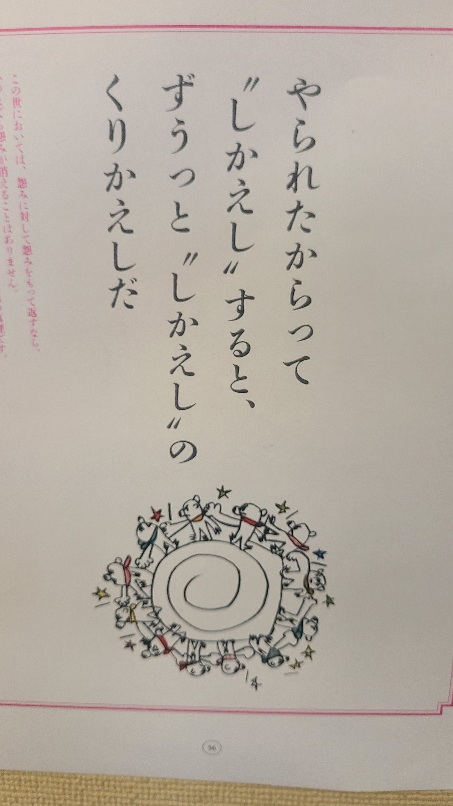 やられたからって
〝しかえし〟すると、
ずうっと〝しかえし〟の
くりかえしだ
この世においては、怨みに対して怨みをもって返すなら、
怨みが消えることはありません。